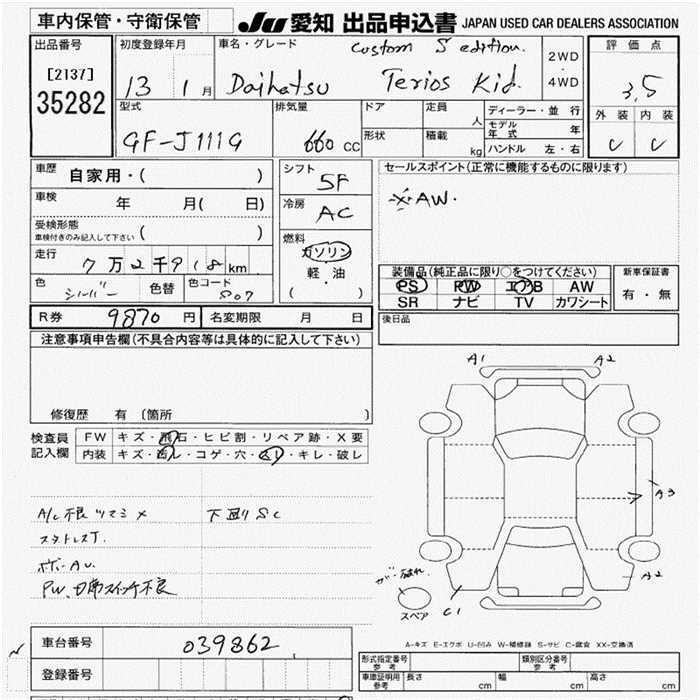 車内保管・守衛保管
JU 愛知 出品申込書 JAPAN USED CAR DEALERS ASSOCIATION
出品番号
[2137]
35282
初度登録年月
13 1月
車名・グレード
Custom S edition.
Daihatsu Terios Kid.
2WD
4WD
評価点
3.5
外装 内装
C C
型式
GF-J111G
排気量
660 CC
ドア
形状
定員 人
積載 kg
ディーラー・並行
モデル年式 年
ハンドル 左・右
車歴 自家用・( )
車検 年 月( 日)
受検形態
車検付きのみ記入して下さい ( )
走行 7万2千918km
色 シルバー 色替 色コード S07
シフト 5F
冷房 AC
燃料
ガソリン
軽・油
( )
セールスポイント(正常に機能するものに限ります)
AW.
装備品(純正品に限り○をつけてください)
PS PW エアB AW
SR ナビ TV カワシート
新車保証書
有・無
R券 9870円 名変期限 月 日
後日品
注意事項申告欄(不具合内容等は具体的に記入して下さい)
修復歴 有 〔箇所 〕
検査員
記入欄
FW キズ・飛石・ヒビ割・リペア跡・X要
内装 キズ・汚レ・コゲ・穴・スレ・キレ・破レ
A/C不良 ツマミ× 下回りSC
スタットレスT.
PW、D席スイッチ不良
A1 A2
A3
A2
C1
スペア
A-キズ E-エクボ U-凹み W-補修跡 S-サビ C-腐食 XX-交換済
車台番号 039862
登録番号
形式指定番号 参考
類別区分番号 参考
車庫証明用 参考 長さ cm 幅 cm 高さ cm